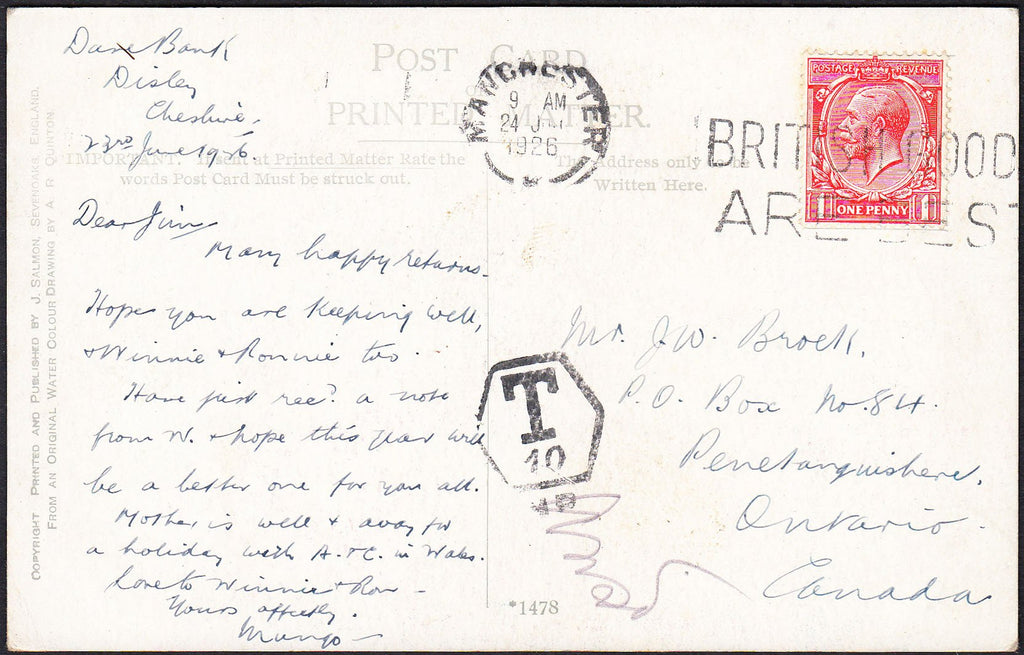 Dane Bank
Disley
Cheshire.
23rd June 1926.
Dear Jim
Many happy returns.
Hope you are keeping well,
& Winnie & Ronnie too.
Have just recd. a note
from W. & hope this year will
be a better one for you all.
Mother is well & away for
a holiday with A. & C. in Wales.
Love to Winnie & Ron -
Yours affectly.
Mungo -
POST CARD
PRINTED MATTER.
IMPORTANT: If sent at Printed Matter Rate the
words Post Card Must be struck out.
The Address only to be
Written Here.
MANCHESTER
9 AM
24 J
1926
BRITISH GOOD
ARE BEST
POSTAGE REVENUE
ONE PENNY 1
T
10
Mr. J.W. Brock.
P.O. Box No. 84.
Penetanguishene.
Ontario.
Canada
*1478
COPYRIGHT PRINTED AND PUBLISHED BY J. SALMON, SEVENOAKS, ENGLAND.
FROM AN ORIGINAL WATER COLOUR DRAWING BY A. R. QUINTON.